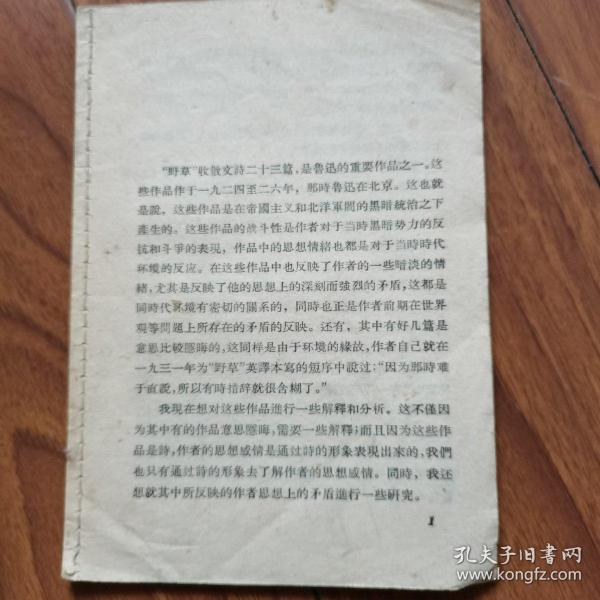 “野草”收散文詩二十三篇，是魯迅的重要作品之一。这
些作品作于一九二四至二六年，那時魯迅在北京。这也就
是說，这些作品是在帝國主义和北洋軍閥的黑暗統治之下
產生的。这些作品的战斗性是作者对于当時黑暗势力的反
抗和斗爭的表現，作品中的思想情緒也都是对于当時時代
环境的反应。在这些作品中也反映了作者的一些暗淡的情
緒，尤其是反映了他的思想上的深刻而強烈的矛盾，这都是
同時代环境有密切的關系的，同時也正是作者前期在世界
观等問題上所存在的矛盾的反映。还有，其中有好几篇是
意思比較隱晦的，这同样是由于环境的緣故，作者自己就在
一九三一年为“野草”英譯本寫的短序中說过：“因为那時难
于直說，所以有時措辞就很含糊了。”
我現在想对这些作品進行一些解釋和分析。这不僅因
为其中有的作品意思隱晦，需要一些解釋；而且因为这些作
品是詩，作者的思想感情是通过詩的形象表現出來的，我們
也只有通过詩的形象去了解作者的思想感情。同時，我还
想就其中所反映的作者思想上的矛盾進行一些硏究。
1
孔夫子旧书网
www.kongfz.com